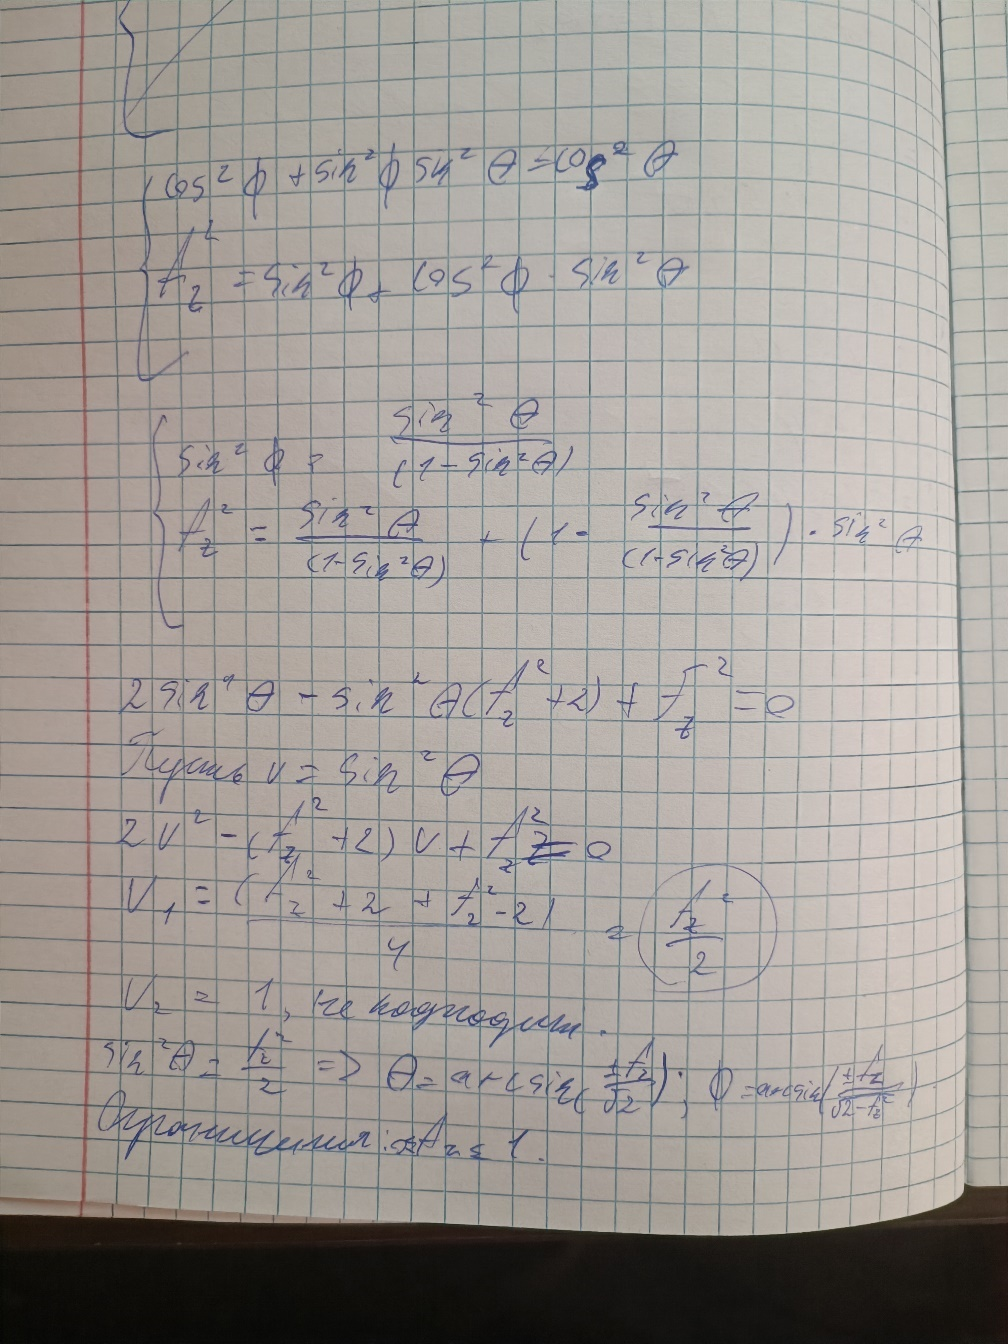 cos² ϕ + sin² ϕ sin² θ = cos² θ
f_z² = sin² ϕ + cos² ϕ · sin² θ
sin² ϕ = sin² θ / (1 - sin² θ)
f_z² = sin² θ / (1 - sin² θ) + (1 - sin² θ / (1 - sin² θ)) · sin² θ
2 sin⁴ θ - sin² θ (f_z² + 2) + f_z² = 0
Пусть v = sin² θ
2v² - (f_z² + 2) v + f_z² = 0
v₁ = (f_z² + 2 + f_z² - 2) / 4 = f_z² / 2
v₂ = 1, не подходит.
sin² θ = f_z² / 2 => θ = arcsin(±f_z / √2); ϕ = arcsin(±f_z / √2 - f_z²)
Ограничения: f_z ≤ 1.